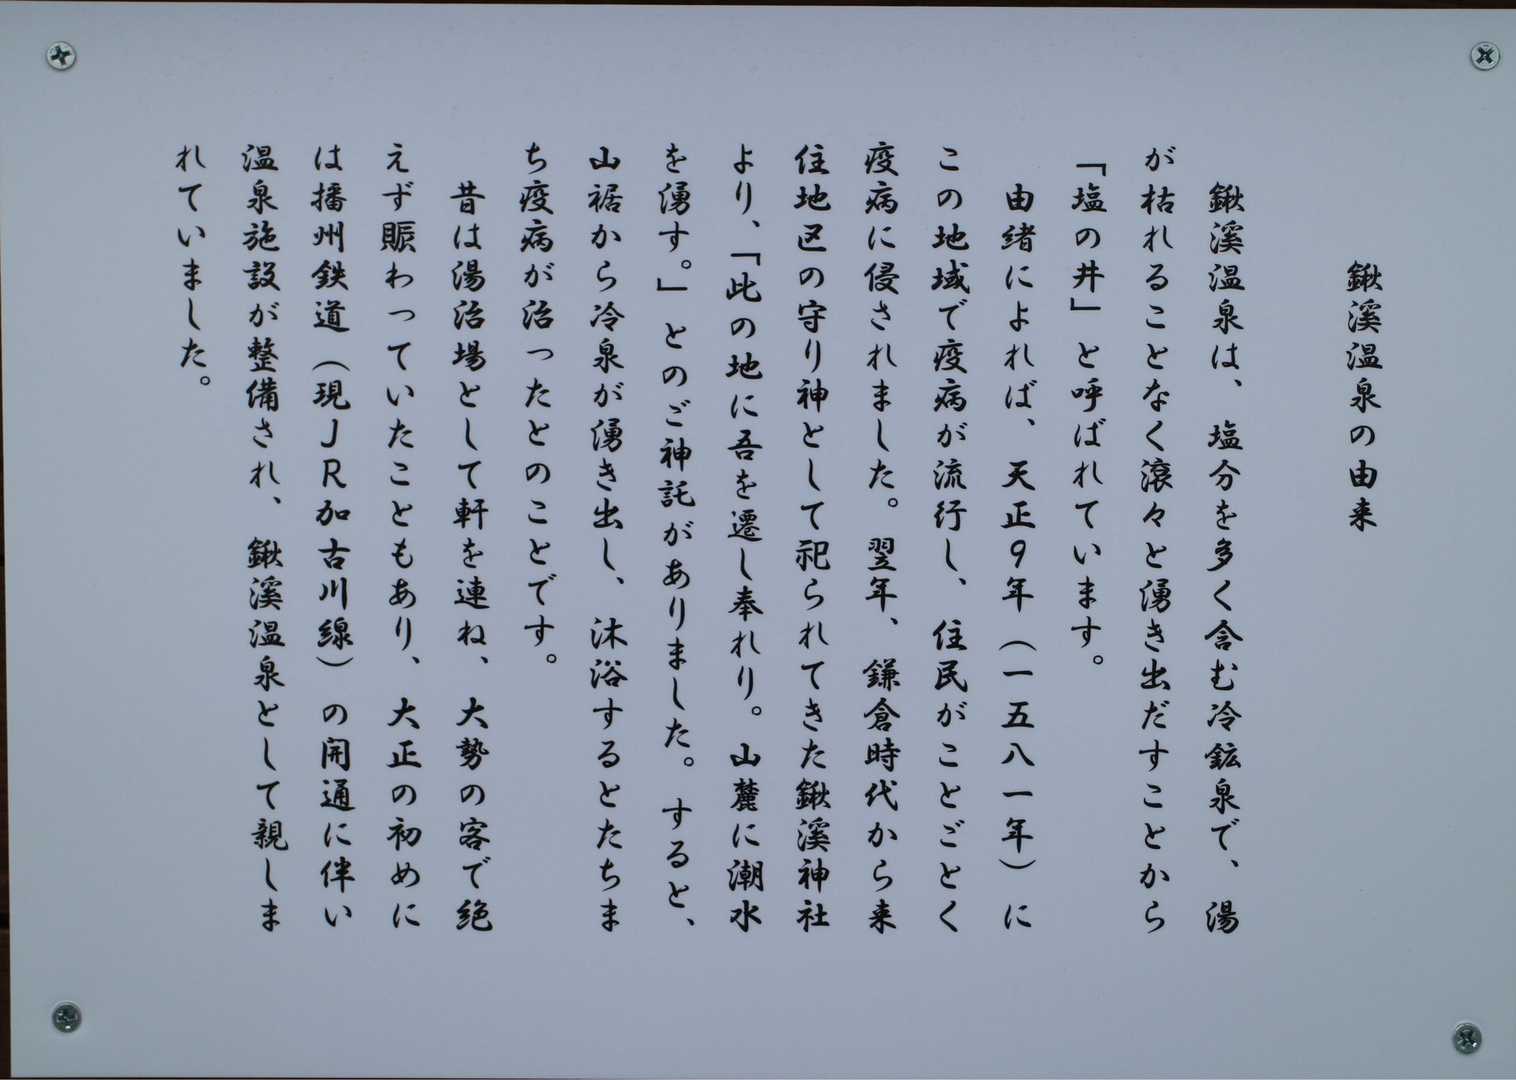 鍬溪温泉の由来
鍬溪温泉は、塩分を多く含む冷鉱泉で、湯
が枯れることなく滾々と湧き出だすことから
「塩の井」と呼ばれています。
由緒によれば、天正9年（一五八一年）に
この地域で疫病が流行し、住民がことごとく
疫病に侵されました。翌年、鎌倉時代から来
住地区の守り神として祀られてきた鍬溪神社
より、「此の地に吾を遷し奉れり。山麓に潮水
を湧す。」とのご神託がありました。すると、
山裾から冷泉が湧き出し、沐浴するとたちま
ち疫病が治ったとのことです。
昔は湯治場として軒を連ね、大勢の客で絶
えず賑わっていたこともあり、大正の初めに
は播州鉄道（現JR加古川線）の開通に伴い
温泉施設が整備され、鍬溪温泉として親しま
れていました。